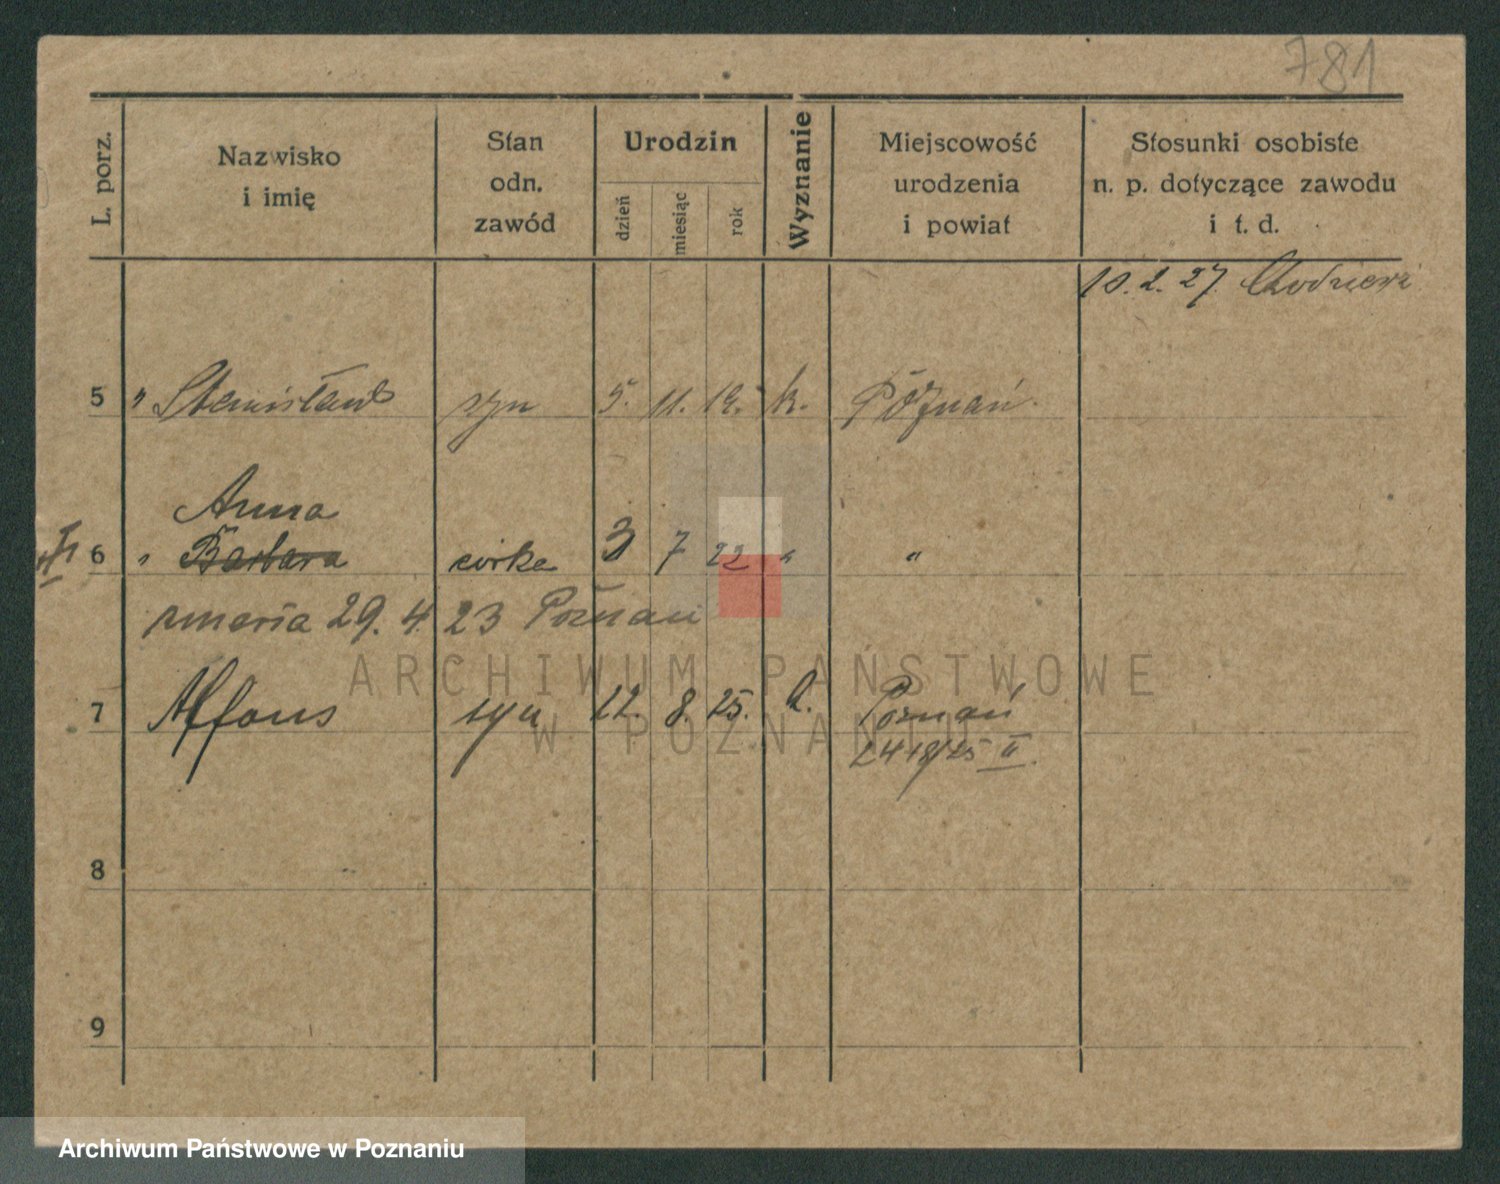 781
L. porz. Nazwisko i imię Stan odn. zawód Urodzin dzień miesiąc rok Wyznanie Miejscowość urodzenia i powiat Stosunki osobiste n. p. dotyczące zawodu i t. d.
10.2.27
5 " Stanisław syn 5. 11. 19. k. Poznań
Anna
6 " Barbara córka 3 7 22 " "
zmarła 29. 4. 23 Poznań
7 Alfons syn 12. 8. 25. k. Poznań
2418/25 II.
8
9
ARCHIWUM PAŃSTWOWE
W POZNANIU
Archiwum Państwowe w Poznaniu